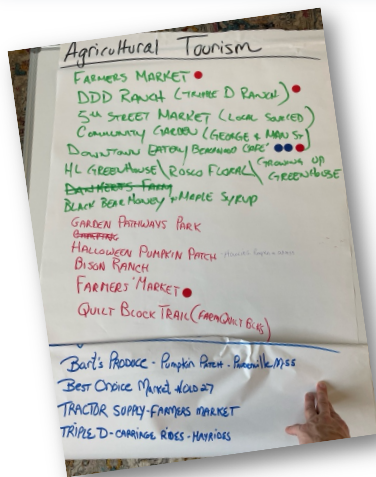 Agricultural Tourism
FARMERS MARKET
DDD RANCH (TRIPLE D RANCH)
5th STREET MARKET (LOCAL SOURCED)
COMMUNITY GARDEN (GEORGE & MAIN ST)
DOWNTOWN EATERY/ CAFE'
HL GREENHOUSE\ROSCO FLORAL\(GROWING UP GREENHOUSE
FARM
BLACK BEAR MONEY MAPLE SYRUP
GARDEN PATHWAYS PARK
HALLOWEEN PUMPKIN PATCH
BISON RANCH
FARMERS' MARKET
QUILT BLOCK TRAIL (FARM QUILT BLKS)
BART'S PRODUCE - PUMPKIN PATCH -
BEST CHOICE MARKET
TRACTOR SUPPLY-FARMERS MARKET
TRIPLE D-CARRIAGE RIDES-HAYRIDES